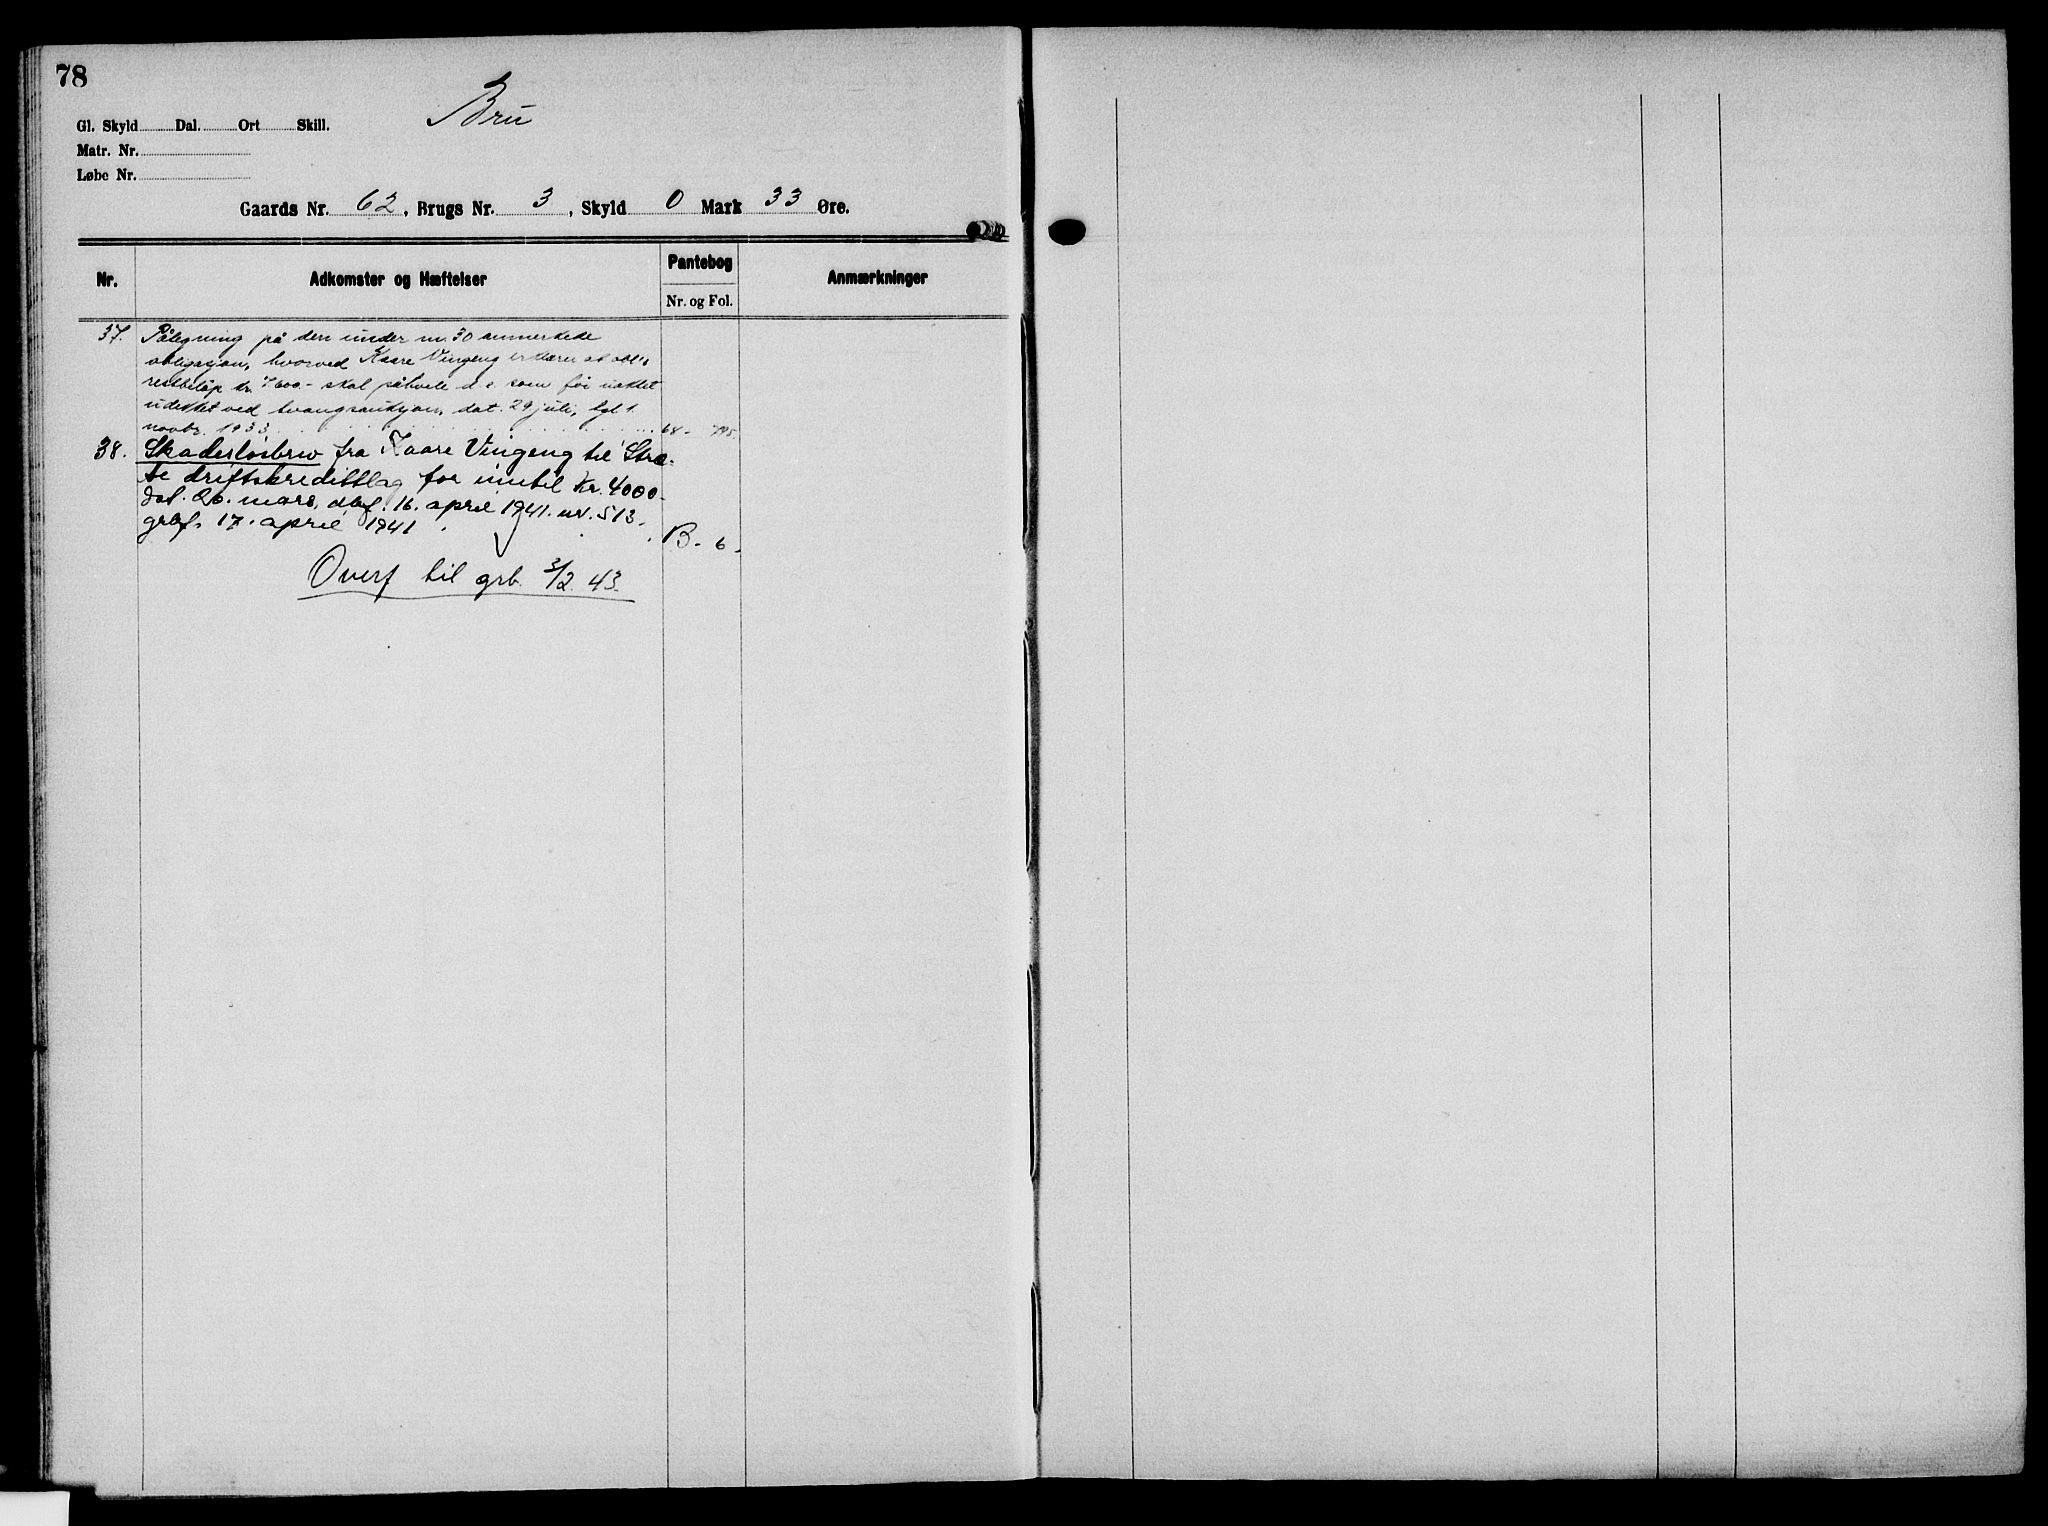 78
Bru
Gl. Skyld Dal. Ort Skill.
Matr. Nr.
Løbe Nr.
Gaards Nr. 62, Brugs Nr. 3, Skyld 0 Mark 33 Øre.
Nr. Adkomster og Hæftelser Pantebog Anmærkninger
Nr. og Fol.
37. Påtegning på den under nr. 30 anmerkede
obligasjon, hvorved Kaare Vingeng erklærer at obl.s
restbeløp kr. 7600.- skal påhvile d. e. som før uaktet
udekket ved tvangsauksjon, dat. 29 juli, tgl. 1.
novbr. 1933 68-
38. Skadesløsbrev fra Kaare Vingeng til Stræ-
te driftskredittlag for inntil Kr. 4000-
dat. 26. mars, dbf. 16. april 1941. nr. 513.
grbf. 17. april 1941.
B- 6-
Overf til grb. 3/2. 43.